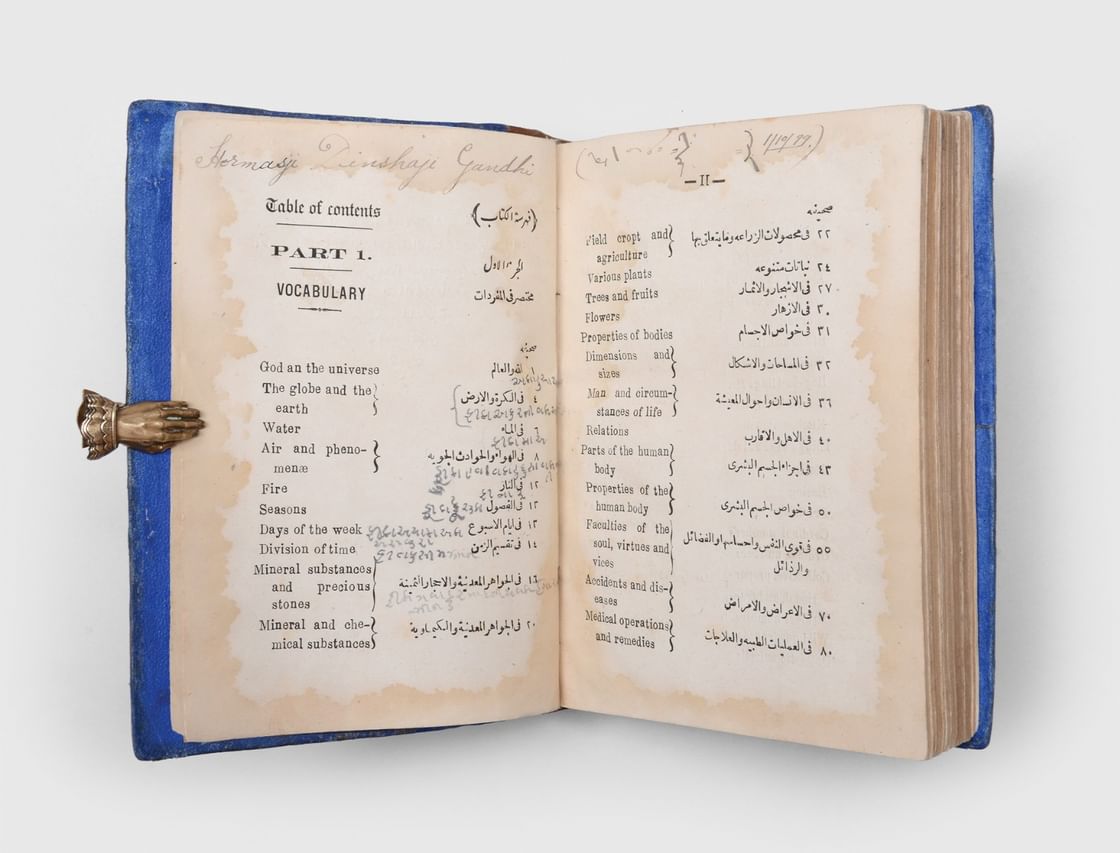 Hormasji Dinshaji Gandhi
Table of contents
(فهرسة الكتاب)
PART 1.
الجزء الاول
VOCABULARY
مختصر فى المفردات
صحيفه
God an the universe
١ الله والعالم
The globe and the
earth
٤ فى الكرة والارض
Water
٦ فى الماء
Air and pheno-
menæ
٨ فى الهواء والحوادث الجويه
Fire
١٢ فى النار
Seasons
١٢ الفصول
Days of the week
١٣ فى ايام الاسبوع
Division of time
١٤ فى تقسيم الزمن
Mineral substances
and precious
stones
١٦ فى الجواهر المعدنية والاحجار الثمينة
Mineral and che-
mical substances
٢٠ فى الجواهر المعدنية والكيماوية
1/10/99.
—II—
صحيفه
Field cropt and
agriculture
٢٢ فى محصولات الزراعه وما يتعلق بها
Various plants
٢٤ نباتات متنوعه
Trees and fruits
٢٧ فى الاشجار والاثمار
Flowers
٣٠ فى الازهار
Properties of bodies
٣١ فى خواص الاجسام
Dimensions and
sizes
٣٢ فى المساحات والاشكال
Man and circum-
stances of life
٣٦ فى الانسان واحوال المعيشة
Relations
٤٠ فى الاهل والاقارب
Parts of the human
body
٤٣ فى اجزاء الجسم البشرى
Properties of the
human body
٥٠ فى خواص الجسم البشرى
Faculties of the
soul, virtues and
vices
٥٥ فى قوى النفس واحساسها والفضائل
والرذائل
Accidents and dis-
eases
٧٠ فى الاعراض والامراض
Medical operations
and remedies
٨٠ فى العمليات الطبيه والعلاجات